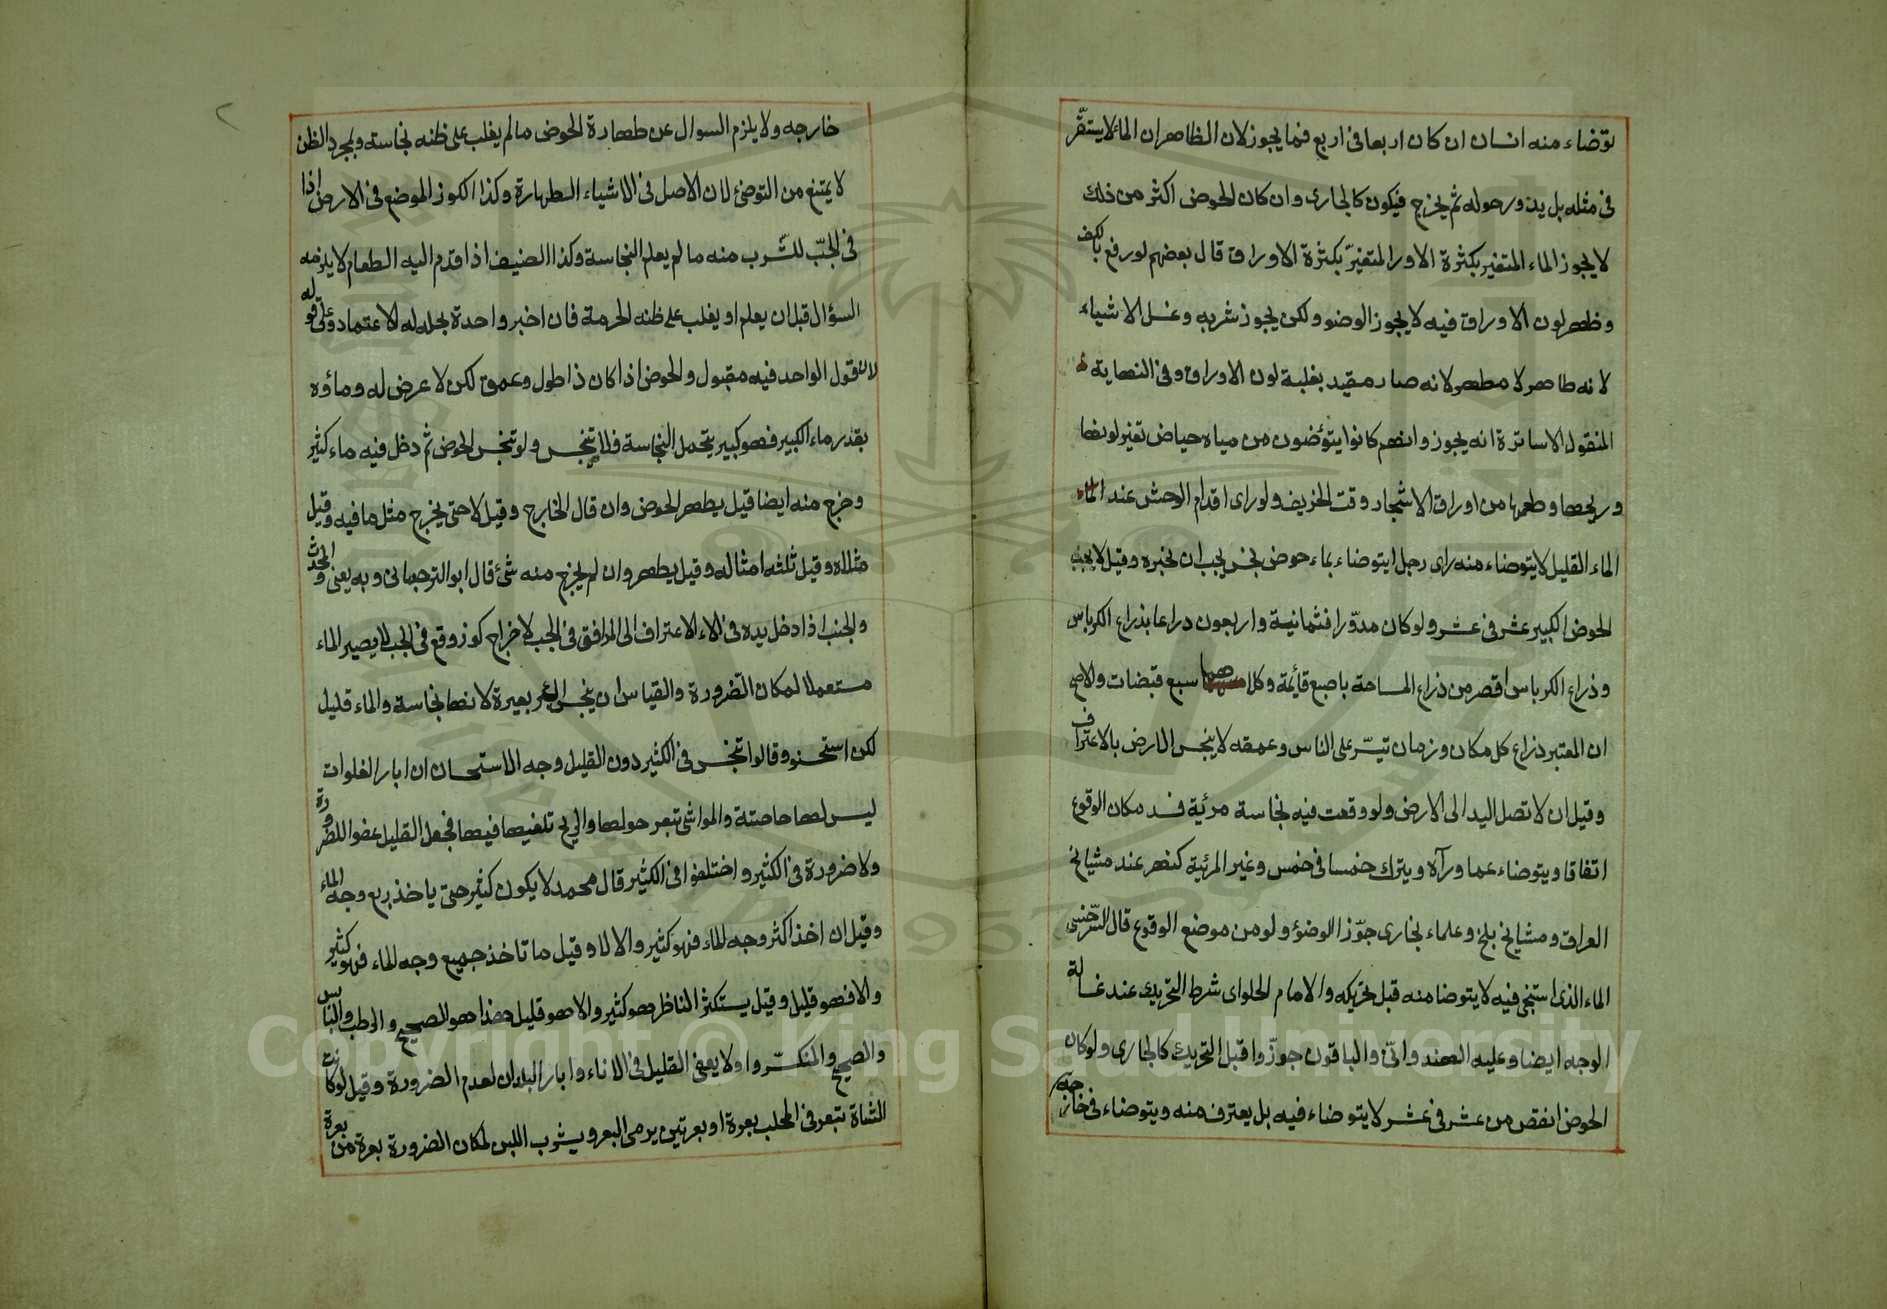 توضاء منه انسان ان كان اربعا فى اربع فما يجوز لان الظاهر ان الماء لا يستقر
فى مثله بل يدور حوله ثم يخرج فيكون كالجارى وان كان الحوض اكثر من ذلك
لا يجوز الماء المتغير بكثرة الاورا المتغير بكثرة الاوراق قال بعضهم لو رفع بالكف
وظهر لون الاوراق فيه لا يجوز الوضو ولكن يجوز شربه وغسل الاشياء
لانه طاهر لا مطهر لانه صار مقيد بغلبة لون الاوراق وفى النهاية
المنقول الاساتزة انه يجوز وانهم كانوا يتوضون من مياه حياض تغير لونها
وريحها وطعمها من اوراق الاشجار وقت الخريف ولو راى اقدام الوحش عند الماء
الماء القليل لا يتوضاء منه راى رجل ايتوضاء بماء حوض نجس يجب ان يخبره وقيل لا يجب
الحوض الكبير عشر فى عشر ولو كان مدورا فثمانية واربعون دراعا بذراع الكرباس
وذراع الكرباس اقصر من ذراع المساحة باصبع قائمة وكلا سبع قبضات والاصح
ان المعتبر ذراع كل مكان وزمان تيسر على الناس وعمقه لا ينجس الارض بالاعتراف
وقيل ان لا تصل اليد الى الارض ولو وقعت فيه نجاسة مرئية فسد مكان الوقوع
اتفاقا ويتوضاء عما ورآه ويترك خمسا فى خمس وغير المرئية كنهر عند مشيايخ
العراق ومشيايخ بلخ وعلماء بخارى جوز الوضؤ ولو من موضع الوقوع قال السرخسى
الماء الذى استنجى فيه لا يتوضا منه قبل تحريكه والامام الحلواى شرط التحريك عند غسالة
الوجه ايضا وعليه الهندوانى والباقون جوزوا قبل التحريك كالجارى ولو كان
الحوض انقص من عشر فى عشر لا يتوضاء فيه بل يعترف منه ويتوضاء فى خارجه
خارجه ولا يلزم السوال عن طهارة الحوض ما لم يغلب على ظنه نجاسته وبمجرد الظن
لا يمتنع من التوضئ لان الاصل فى الاشياء الطهارة وكذا الكوز الموضع فى الارض اذا
فى الجب للشرب منه ما لم يعلم النجاسة وكذا الضيف اذا قدم اليه الطعام لا يلزمه
السؤال قبل ان يعلم او يغلب على ظنه الحرمة فان اخبر واحدة بحله له الاعتماد وعلى قوله
لان قول الواحد فيه مقبول والحوض اذا كان ذا طول وعمق لكن لا عرض له وماؤه
بقدر ماء الكبير فهو كبير يتحمل النجاسة فلا يتنجس ولو تنجس الحوض ثم دخل فيه ماء كثير
وخرج منه ايضا قيل يطهر الحوض وان قال الخارج وقيل لا حتى يخرج مثل ما فيه وقيل
مثلاه وقيل ثلثه امثاله وقيل يطهر وان لم يخرج منه شئ قال ابو الترجمانى وبه يفتى والمحدث
والجنب اذا دخل يده فى الاء الاعتراف الى المرافق فى الجب لاخراج كوز وقع فى الجب لا يصير الماء
مستعملا لمكان الضرورة والقياس ان ينجس البير بعيرة لانها نجاسة والماء قليل
لكن استحسنو وقالوا تنجس فى الكثير دون القليل وجه الاستحسان ان ابار الفلوات
ليس لها حاحتة والمواشى تبعر حولها والريح تلفيها فيها فجعل القليل عفو اللضرورة
ولا ضرورة فى الكثير واختلفوا فى الكثير قال محمد لا يكون كثير حتى ياخذ ربع وجه الماء
وقيل ان اخذ اكثر وجه الماء فهو كثير والا لا وقيل ما تاخذ جميع وجه الماء فهو كثير
والا فهو قليل وقيل يستكثر الناظر هو كثير والا هو قليل هذا هو الصحيح والرطب واليابس
والصحيح والمنكسر واولا يعفى القليل فى الاناء وابار البلدان لعدم الضرورة وقيل لو كانت
الشاة تبعر فى المحلب بعرة او بعرتين يرمى البعر ويشوب اللبن لمكان الضرورة بعرة من بعرة
Copyright © King Saud University